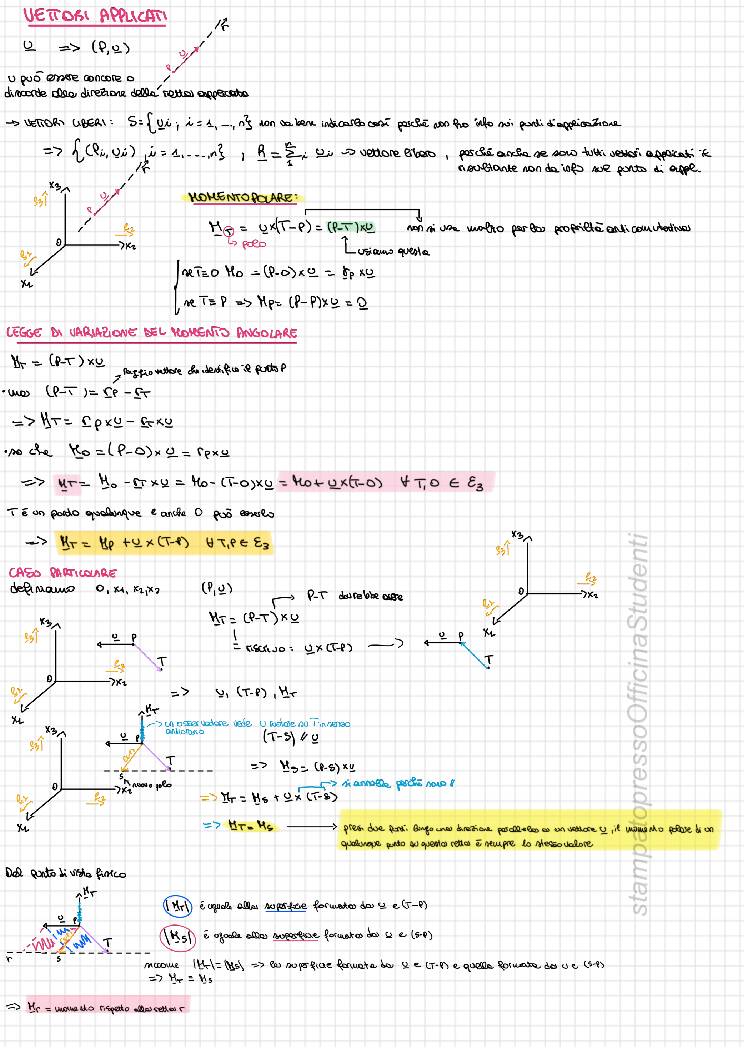 VETTORI APPLICATI
u => (P,u)
P u r
u può essere concorde o
discorde alla direzione della retta applicata
→ VETTORI LIBERI: S={ui; i=1,...,n} non va bene indicarlo così perché non ho info sui punti di applicazione
=> {(Pi,ui), i=1,...,n}, R=Σ ui => vettore libero, perché anche se sono tutti vettori applicati il
risultante non dà info sul punto di appl.
x3 e3 O e2 x2 e1 x1 P u r
MOMENTO POLARE:
MT = u×(T-P) = (P-T)×u non si usa molto per la proprietà anticommutativa
polo
usiamo questa
se T≡O Mo = (P-O)×u = rp×u
se T≡P => Mp = (P-P)×u = 0
LEGGE DI VARIAZIONE DEL MOMENTO ANGOLARE
MT = (P-T)×u
raggio vettore che identifica il punto P
·ma (P-T) = rp-rT
=> MT = rp×u - rT×u
·so che Mo = (P-O)×u = rp×u
=> MT = Mo - rT×u = Mo-(T-O)×u = Mo+u×(T-O) ∀ T,O ∈ E3
T è un punto qualunque e anche O può esserlo
=> MT = Mp + u×(T-P) ∀ T,P ∈ E3
CASO PARTICOLARE
definiamo O, x1, x2, x3 (P,u)
P-T dovrebbe essere
MT = (P-T)×u
= riscrivo: u×(T-P) →
u P T
x3 e3 O e2 x2 e1 x1
x3 e3 O e2 x2 e1 x1
u P T
=> u, (T-P), MT
MT
un osservatore vede u ruotare su T in senso
antiorario
(T-S) // u
=> MS = (P-S)×u
x3 e3 O e2 x2 e1 x1
u P T S
nuovo polo
si annulla perché sono //
=> MT = MS + u×(T-S)
=> MT = MS → presi due punti lungo una direzione parallela a un vettore u, il momento polare di un
qualunque punto su questa retta è sempre lo stesso valore
Dal punto di vista fisico
MT u P r S T
|MT| è uguale alla superficie formata da u e (T-P)
|MS| è uguale alla superficie formata da u e (S-P)
siccome |MT|=|MS| => la superficie formata da u e (T-P) e quella formata da u e (S-P)
=> MT = MS
=> Mr = momento rispetto alla retta r
stampatopressoOfficinaStudenti